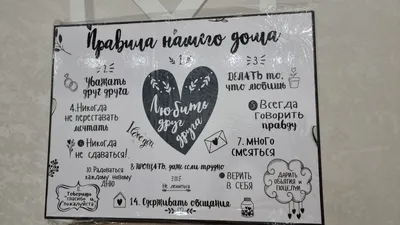 Правила нашего дома
1
Любить
друг
друга
2
Уважать
друг друга
3
ДЕЛАТЬ то,
что любишь
4. Никогда
не переставать
мечтать
I love you
Всегда
говорить
правду
Никогда
не сдаваться!
7. МНОГО
СМЕЯТЬСЯ
8. ПРОЩАТЬ, даже если трудно
ВЕРИТЬ
В СЕБЯ
10. Радоваться
каждому новому
ДНЮ
ЕЩЁ
Не лениться
ДАРИТЬ
ОБЪЯТИЯ и
ПОЦЕЛУИ
Говорить
спасибо и
пожалуйста
14. Сдерживать обещания